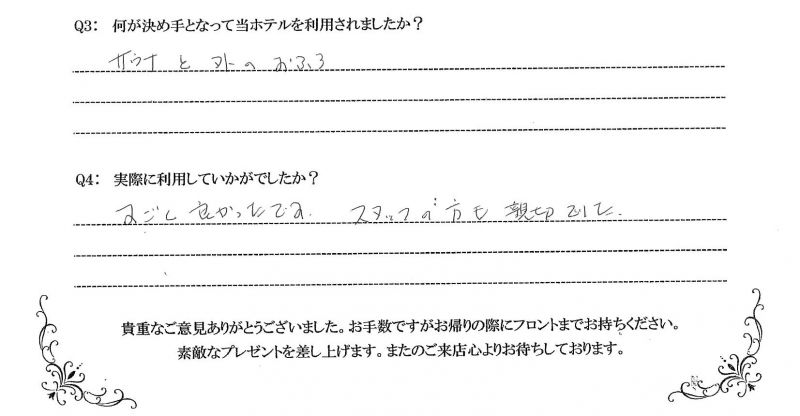 Q3: 何が決め手となって当ホテルを利用されましたか？
サウナと外のおふろ
Q4: 実際に利用していかがでしたか？
すごく良かったです。 スタッフの方も親切でした。
貴重なご意見ありがとうございました。お手数ですがお帰りの際にフロントまでお持ちください。
素敵なプレゼントを差し上げます。またのご来店心よりお待ちしております。